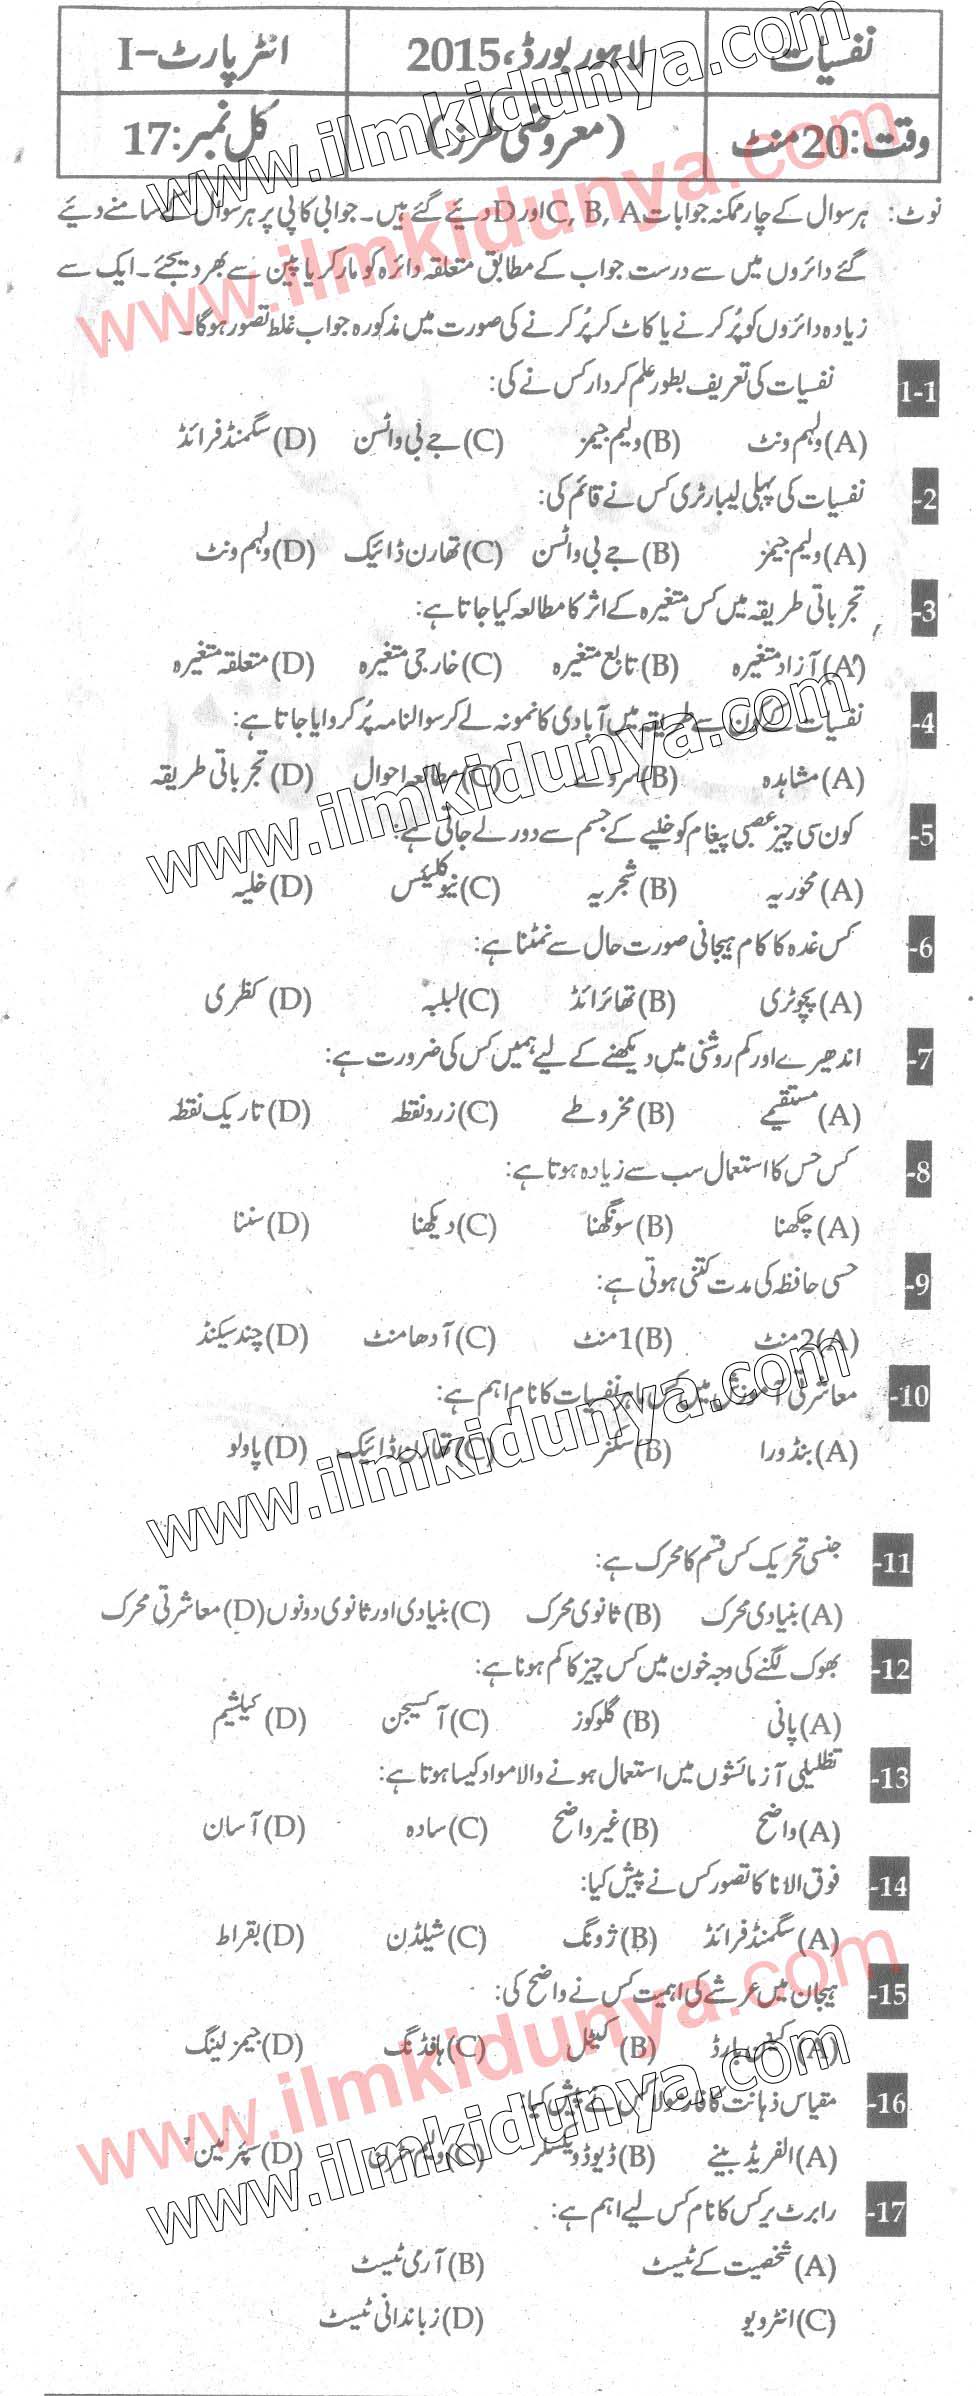 نفسیات لاہور بورڈ، 2015 انٹر پارٹ-I
وقت: 20 منٹ (معروضی طرز) کل نمبر: 17
نوٹ: ہر سوال کے چار ممکنہ جوابات C, B, A اور D دیئے گئے ہیں۔ جوابی کاپی پر ہر سوال کے سامنے دیئے
گئے دائروں میں سے درست جواب کے مطابق متعلقہ دائرہ کو مارکر یا پین سے بھر دیجئے۔ ایک سے
زیادہ دائروں کو پُر کرنے یا کاٹ کر پُر کرنے کی صورت میں مذکورہ جواب غلط تصور ہوگا۔
1-1 نفسیات کی تعریف بطور علم کردار کس نے کی:
(A) ولہم ونٹ (B) ولیم جیمز (C) جے بی واٹسن (D) سگمنڈ فرائڈ
-2 نفسیات کی پہلی لیبارٹری کس نے قائم کی:
(A) ولیم جیمز (B) جے بی واٹسن (C) تھارن ڈائیک (D) ولہم ونٹ
-3 تجرباتی طریقہ میں کس متغیرہ کے اثر کا مطالعہ کیا جاتا ہے:
(A) آزاد متغیرہ (B) تابع متغیرہ (C) خارجی متغیرہ (D) متعلقہ متغیرہ
-4 نفسیات کے کون سے طریقہ میں آبادی کا نمونہ لے کر سوالنامہ پُر کروایا جاتا ہے:
(A) مشاہدہ (B) سروے (C) مطالعہ احوال (D) تجرباتی طریقہ
-5 کون سی چیز عصبی پیغام کو خلیے کے جسم سے دور لے جاتی ہے:
(A) محوریہ (B) شجریہ (C) نیوکلیئس (D) خلیہ
-6 کس غدہ کا کام ہیجانی صورت حال سے نمٹنا ہے:
(A) پچوٹری (B) تھائرائڈ (C) لبلبہ (D) کظری
-7 اندھیرے اور کم روشنی میں دیکھنے کے لیے ہمیں کس کی ضرورت ہے:
(A) مستقیمے (B) مخروطے (C) زرد نقطہ (D) تاریک نقطہ
-8 کس حس کا استعمال سب سے زیادہ ہوتا ہے:
(A) چکھنا (B) سونگھنا (C) دیکھنا (D) سننا
-9 حسی حافظہ کی مدت کتنی ہوتی ہے:
(A) 2 منٹ (B) 1 منٹ (C) آدھا منٹ (D) چند سیکنڈ
-10 معاشرتی آموزش میں کس ماہر نفسیات کا نام اہم ہے:
(A) بنڈورا (B) سکنر (C) تھارن ڈائیک (D) پاولو
-11 جنسی تحریک کس قسم کا محرک ہے:
(A) بنیادی محرک (B) ثانوی محرک (C) بنیادی اور ثانوی دونوں (D) معاشرتی محرک
-12 بھوک لگنے کی وجہ خون میں کس چیز کا کم ہونا ہے:
(A) پانی (B) گلوکوز (C) آکسیجن (D) کیلشیم
-13 تظلیلی آزمائشوں میں استعمال ہونے والا مواد کیسا ہوتا ہے:
(A) واضح (B) غیر واضح (C) سادہ (D) آسان
-14 فوق الانا کا تصور کس نے پیش کیا:
(A) سگمنڈ فرائڈ (B) ژونگ (C) شیلڈن (D) بقراط
-15 ہیجان میں عرشے کی اہمیت کس نے واضح کی:
(A) کینن بارڈ (B) کیٹل (C) ہافڈنگ (D) جیمز لینگ
-16 مقیاس ذہانت کا فارمولا کس نے پیش کیا:
(A) الفریڈ بینے (B) ڈیوڈ ویکسلر (C) ولیم سٹرن (D) سپئر مین
-17 رابرٹ یرکس کا نام کس لیے اہم ہے:
(A) شخصیت کے ٹیسٹ (B) آرمی ٹیسٹ
(C) انٹرویو (D) زباندانی ٹیسٹ
www.ilmkidunya.com
www.ilmkidunya.com
www.ilmkidunya.com
www.ilmkidunya.com
www.ilmkidunya.com
www.ilmkidunya.com